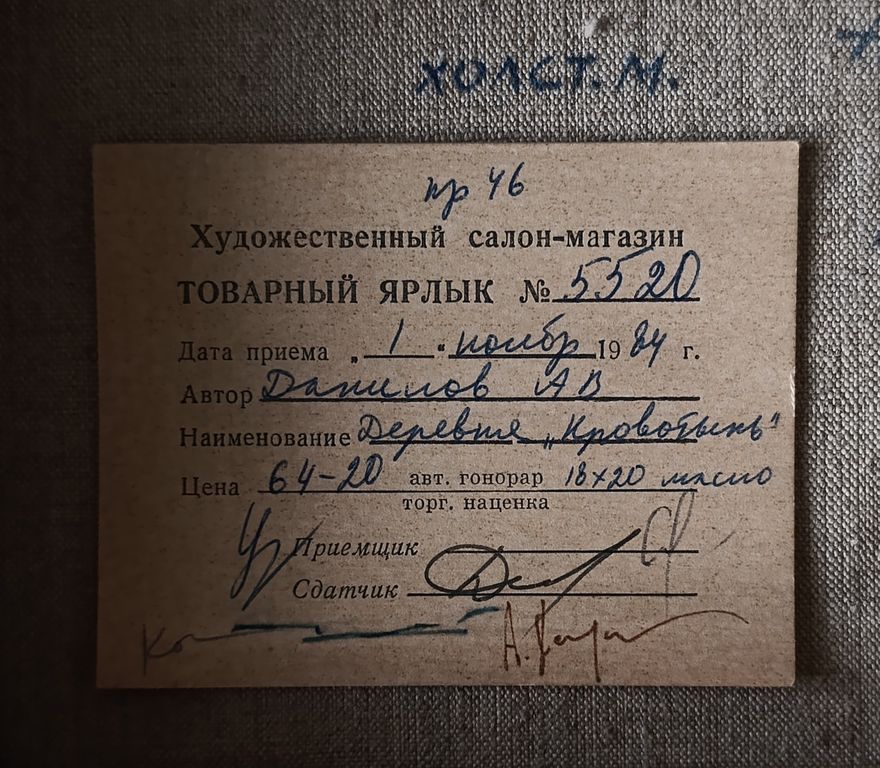 ХОЛСТ. М.
пр 46
Художественный салон-магазин
ТОВАРНЫЙ ЯРЛЫК № 5520
Дата приема „ 1 “ ноябр 1984 г.
Автор Данилов АВ
Наименование Деревня „Кровотынь"
Цена 64-20 авт. гонорар 18х20 масло
торг. наценка
Приемщик
Сдатчик